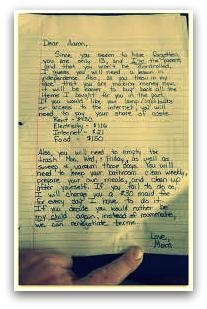 Dear Aaron,
Since you seem to have forgotten
you are only 13, and I'm the parent,
and that you won't be controlled,
I guess you will need a lesson in
independence. Also, as you threw in my
face that you are making money now,
it will be easier to buy back all the
items I bought for you in the past.
If you would like your lamp/lightbulbs
or access to the internet, you will
need to pay your share of costs.
Rent = $430
Electricity = $116
Internet = $21
Food = $150
Also, you will need to empty the
trash Mon, Wed, + Friday, as well as
sweep + vacuum those days. You will
need to keep your bathroom clean weekly,
prepare your own meals, and clean up
after yourself. If you fail to do so,
I will charge you a $30 maid fee
for every day I have to do it.
If you decide you would rather be
my child again, instead of roommates,
we can renegotiate terms.
Love,
Mom